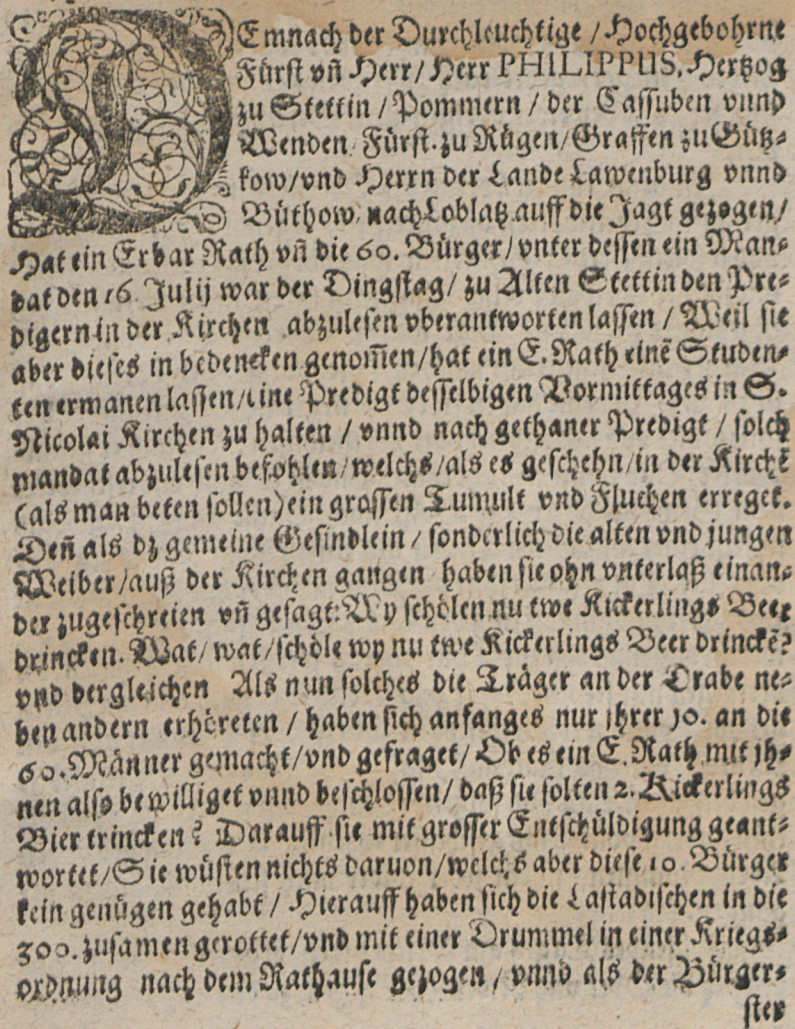 DEmnach der Durchleuchtige / Hochgebohrne
Fürst vn̄ Herr / Herr PHILIPPUS, Hertzog
zu Stettin / Pommern / der Cassuben vnnd
Wenden Fürst. zu Rügen / Graffen zu Gütz-
kow / vnd Herrn der Lande Lawenburg vnnd
Büthow, nach Loblatz auff die Jagt gezogen /
Hat ein Erbar Rath vn̄ die 60. Bürger / vnter dessen ein Man-
dat den 16. Julij war der Dingstag / zu Alten Stettin den Pre-
digern in der Kirchen abzulesen vberantworten lassen / Weil sie
aber dieses in bedencken genom̄en / hat ein E. Rath einē Studen-
ten ermanen lassen / eine Predigt desselbigen Vormittages in S.
Nicolai Kirchen zu halten / vnnd nach gethaner Predigt / solch
mandat abzulesen befohlen / welchs / als es geschehn / in der Kirchē
(als man beten sollen) ein grossen Tumult vnd Fluchen erreget.
Den̄ als dz gemeine Gesindlein / sonderlich die alten vnd jungen
Weiber / auß der Kirchen gangen haben sie ohn vnterlaß einan-
der zugeschreien vn̄ gesagt: Wy schölen nu twe Kickerlings Beer
drincken. Wat / wat / schöle wy nu twe Kickerlings Beer drinckē?
vnd dergleichen Als nun solches die Träger an der Orabe ne-
ben andern erhöreten / haben sich anfanges nur jhrer 10. an die
60. Männer gemacht / vnd gefraget / Ob es ein E. Rath mit jh-
nen also bewilliget vnnd beschlossen / daß sie solten 2. Kickerlings
Bier trincken? Darauff sie mit grosser Entschüldigung geant-
wortet / Sie wüsten nichts daruon / welchs aber diese 10. Bürger
kein genügen gehabt / Hierauff haben sich die Lastadischen in die
300. zusamen gerottet / vnd mit einer Drummel in einer Kriegs-
ordnung nach dem Rathause gezogen / vnnd als der Bürger-
ster